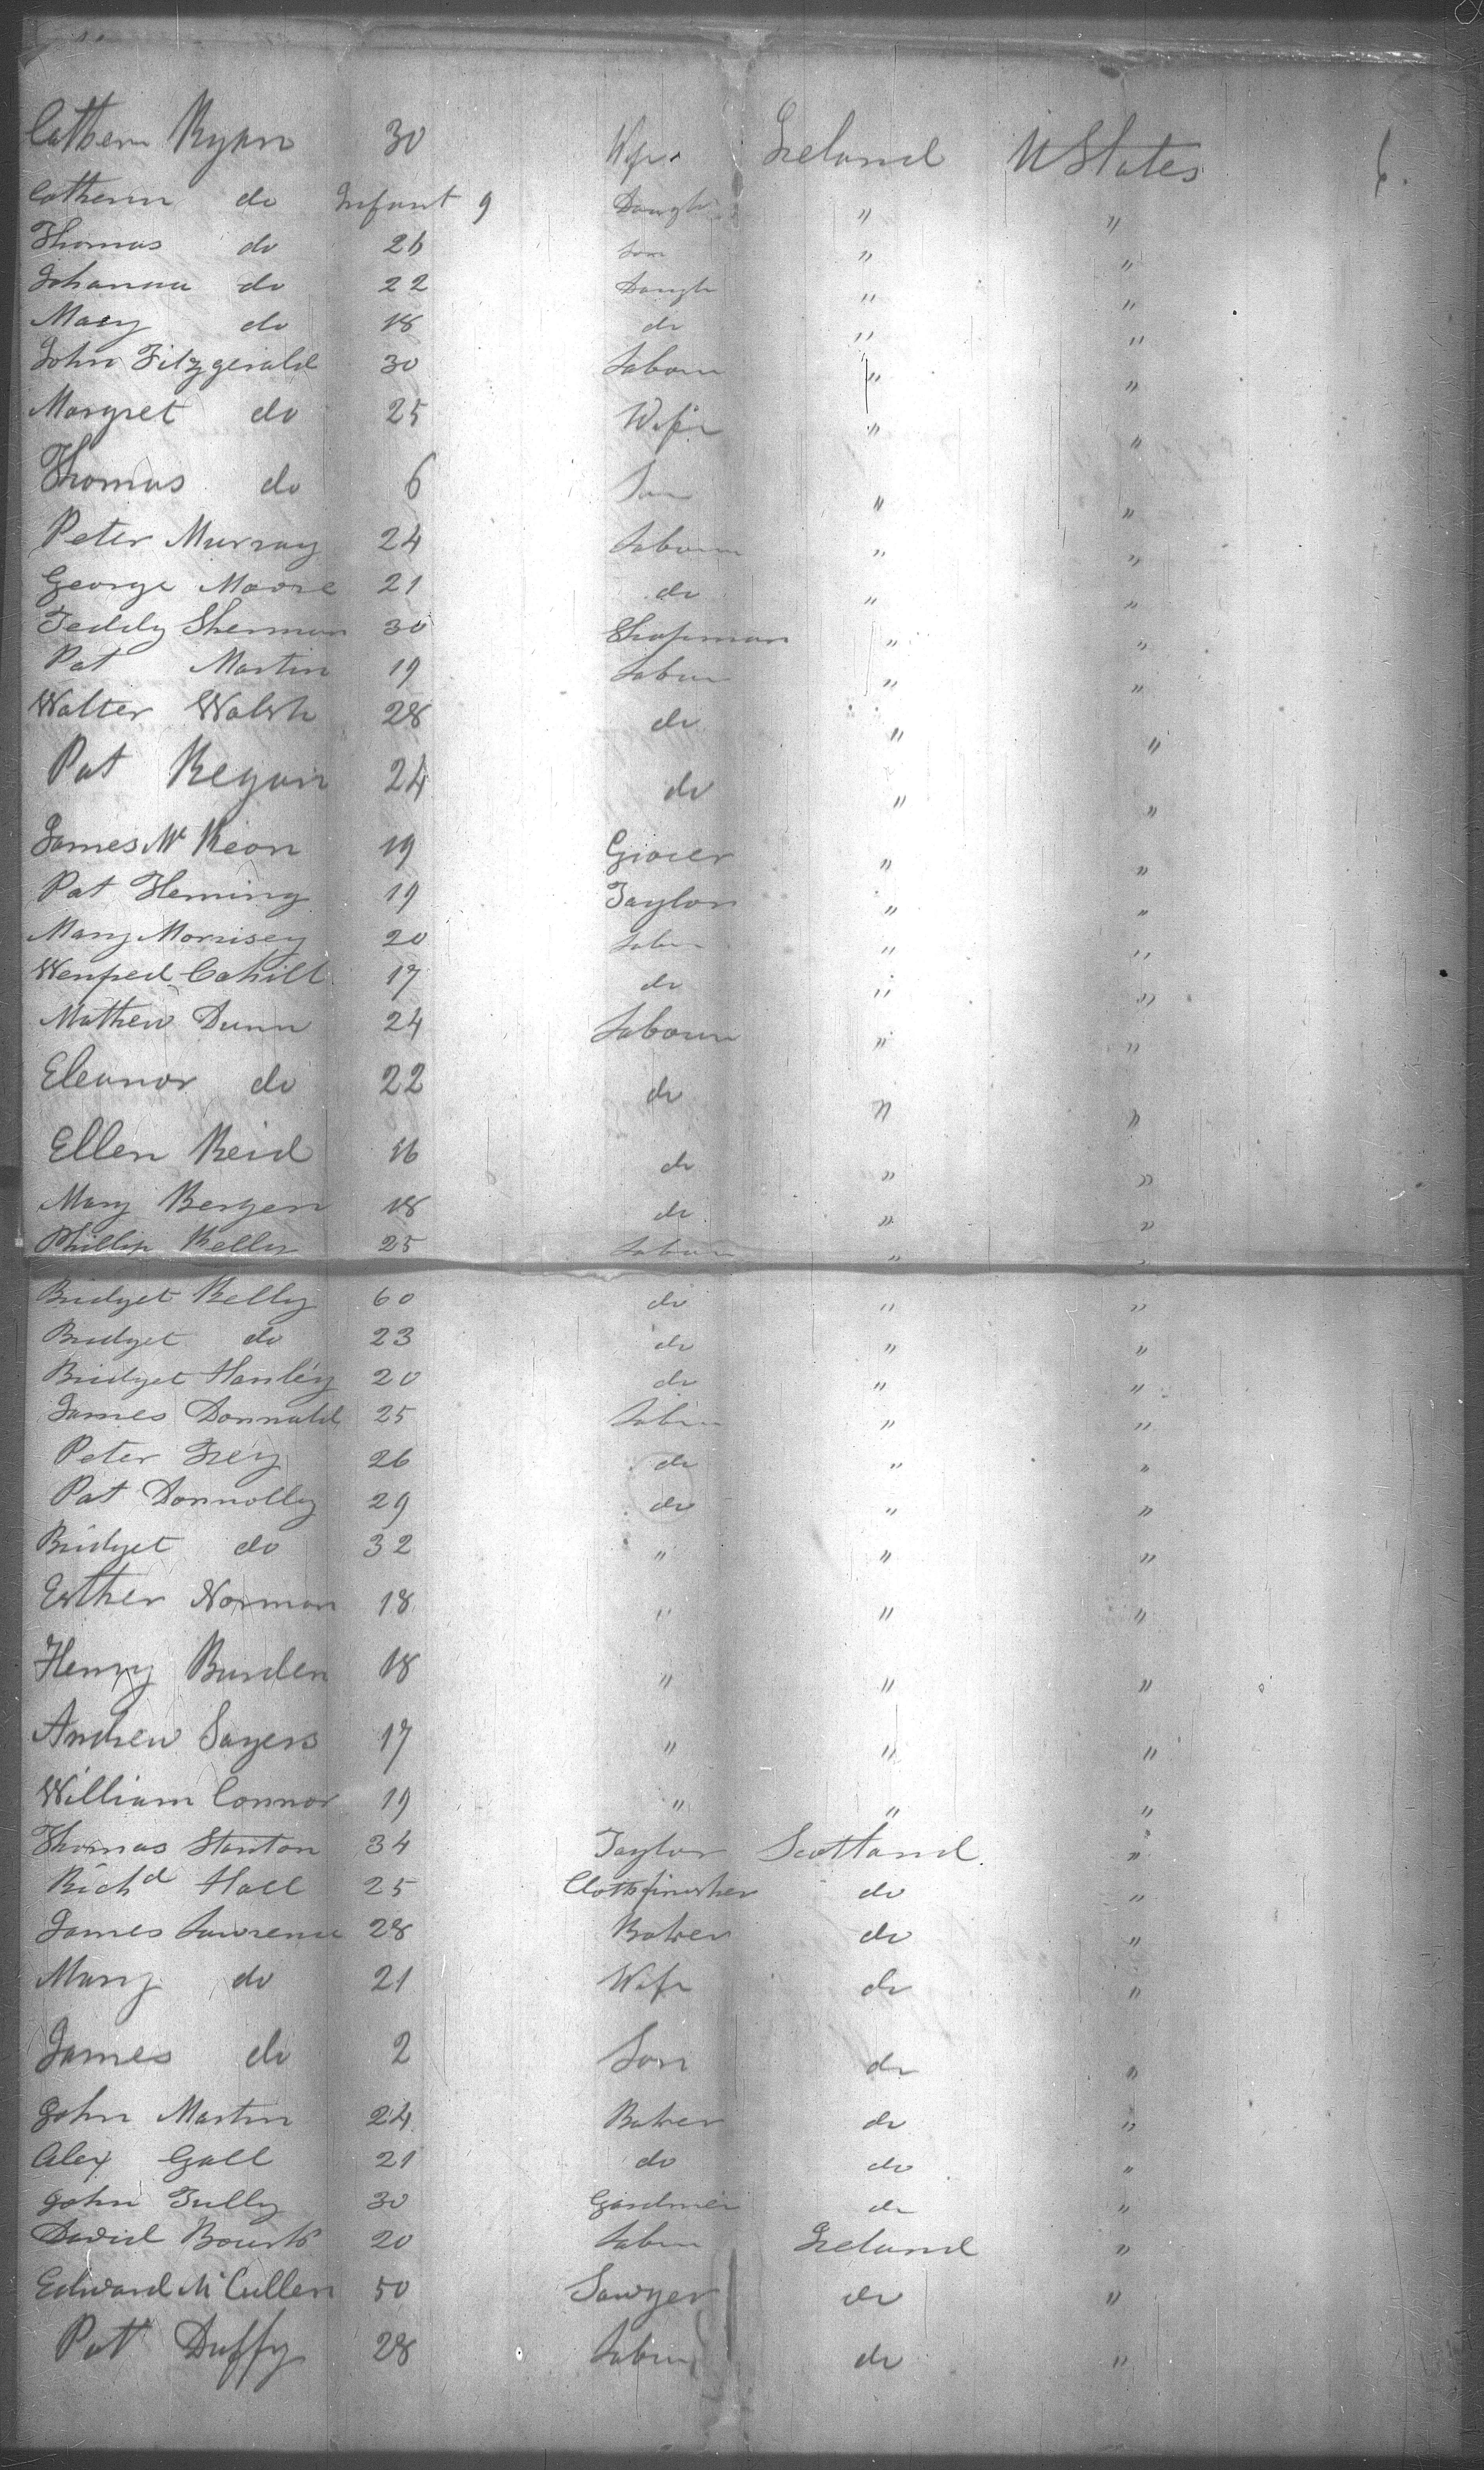 Cathern Ryan 30 Wife Ireland U States
Catherin do Infant 9 Daugh " "
Thomas do 26 Son " "
Johanna do 22 Daugh " "
Mary do 18 do " "
John Fitzgerald 30 Labour " "
Margret do 25 Wife " "
Thomas do 6 Son " "
Peter Murray 24 Labour " "
George Moore 21 do " "
Teddy Sherman 30 Shopman " "
Pat Martin 19 Labour " "
Walter Walsh 28 do " "
Pat Regan 24 do " "
James Mc Keon 19 Grocer " "
Pat Fleming 19 Taylor " "
Mary Morrisey 20 Labur " "
Wenfred Cahill 17 do " "
Mathew Dunn 24 Labour " "
Eleanor do 22 do " "
Ellen Reid 16 do " "
Mary Bergen 18 do " "
Phillip Kelly 25 Labour " "
Bridget Kelly 60 do " "
Bridget do 23 do " "
Bridget Hanley 20 do " "
James Donnald 25 Labur " "
Peter Frey 26 do " "
Pat Donnolly 29 do " "
Bridget do 32 " " "
Esther Norman 18 " " "
Henry Burden 18 " " "
Andrew Sayers 17 " " "
William Connor 19 " " "
Thomas Stanton 34 Taylor Scotland "
Richd Hall 25 Clothfinisher do "
James Lawrence 28 Baker do "
Mary do 21 Wife do "
James do 2 Son do "
John Martin 24 Baker do "
Alex Gall 21 do do "
John Tully 30 Gardner do "
David 20 Labur Ireland "
Edward McCullen 50 Sawyer do "
Pat Duffy 28 Labur do "